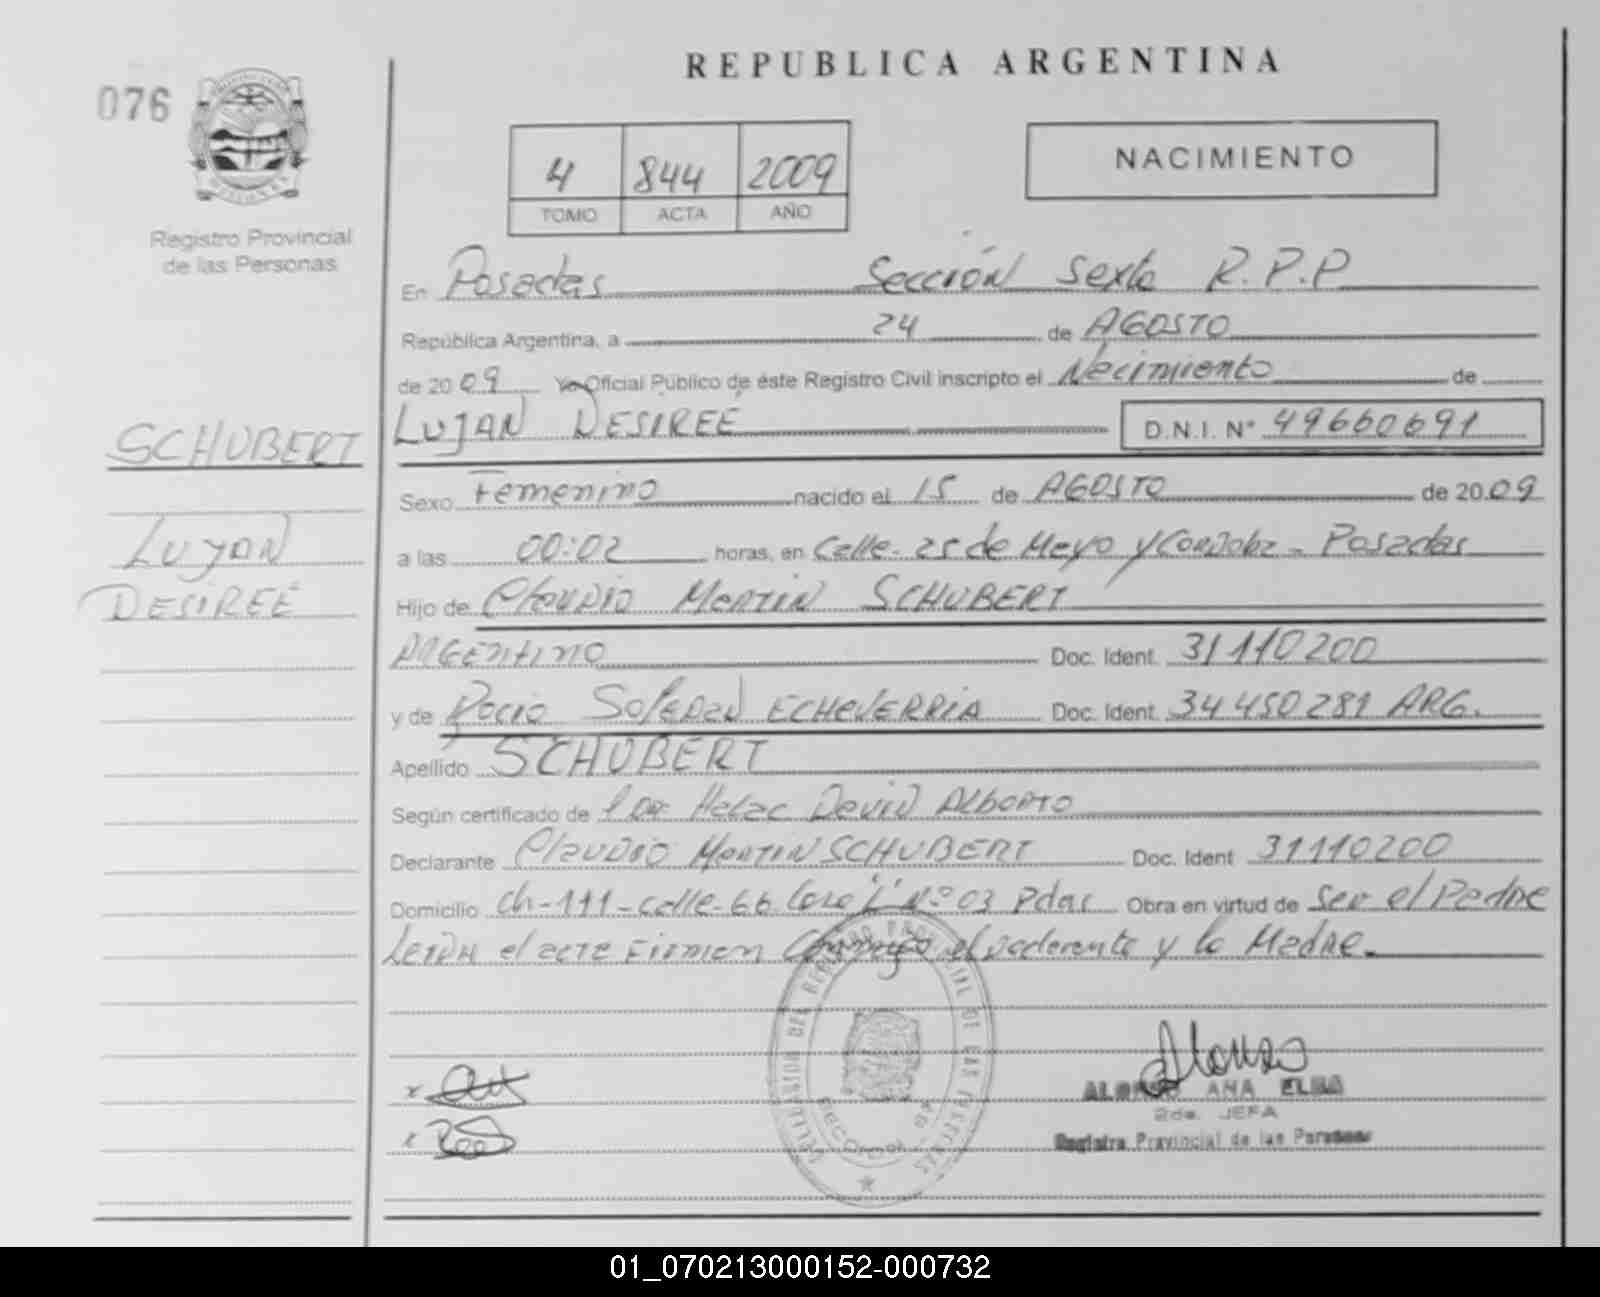 REPUBLICA ARGENTINA
076
4 844 2009
TOMO ACTA AÑO
NACIMIENTO
Registro Provincial
de las Personas
En Posadas Sección Sexta R.P.P
República Argentina, a 24 de AGOSTO
de 2009 Yo Oficial Público de éste Registro Civil inscripto el Nacimiento de
SCHUBERT
LUJAN DESIREÉ D.N.I. N° 49660691
Sexo Femenino nacido el 15 de AGOSTO de 2009
LUJAN
a las 00:02 horas, en Calle. 25 de Mayo y Cordoba - Posadas
DESIREÉ
Hijo de Claudio Martin SCHUBERT
ARGENTINO Doc. Ident. 31110200
y de Rocio Soledad ECHEVERRIA Doc. Ident. 34450281 ARG.
Apellido SCHUBERT
Según certificado de David Alberto
Declarante Claudio Martin SCHUBERT Doc. Ident 31110200
Domicilio ch-111-calle-66 Casa N°03 Pdas Obra en virtud de Ser el Padre
Leida el acta Firman Conmigo el declarante y la Madre.
ALONSO ANA ELBA
2da. JEFA
Registro Provincial de las Personas
01_070213000152-000732